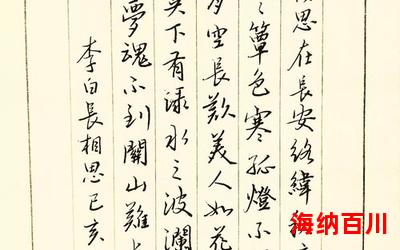 思在長安絡緯
簟色寒孤燈不
月空長歎美人如花
天下有淥水之波瀾
夢魂不到關山難
李白長相思己亥
海纳百川